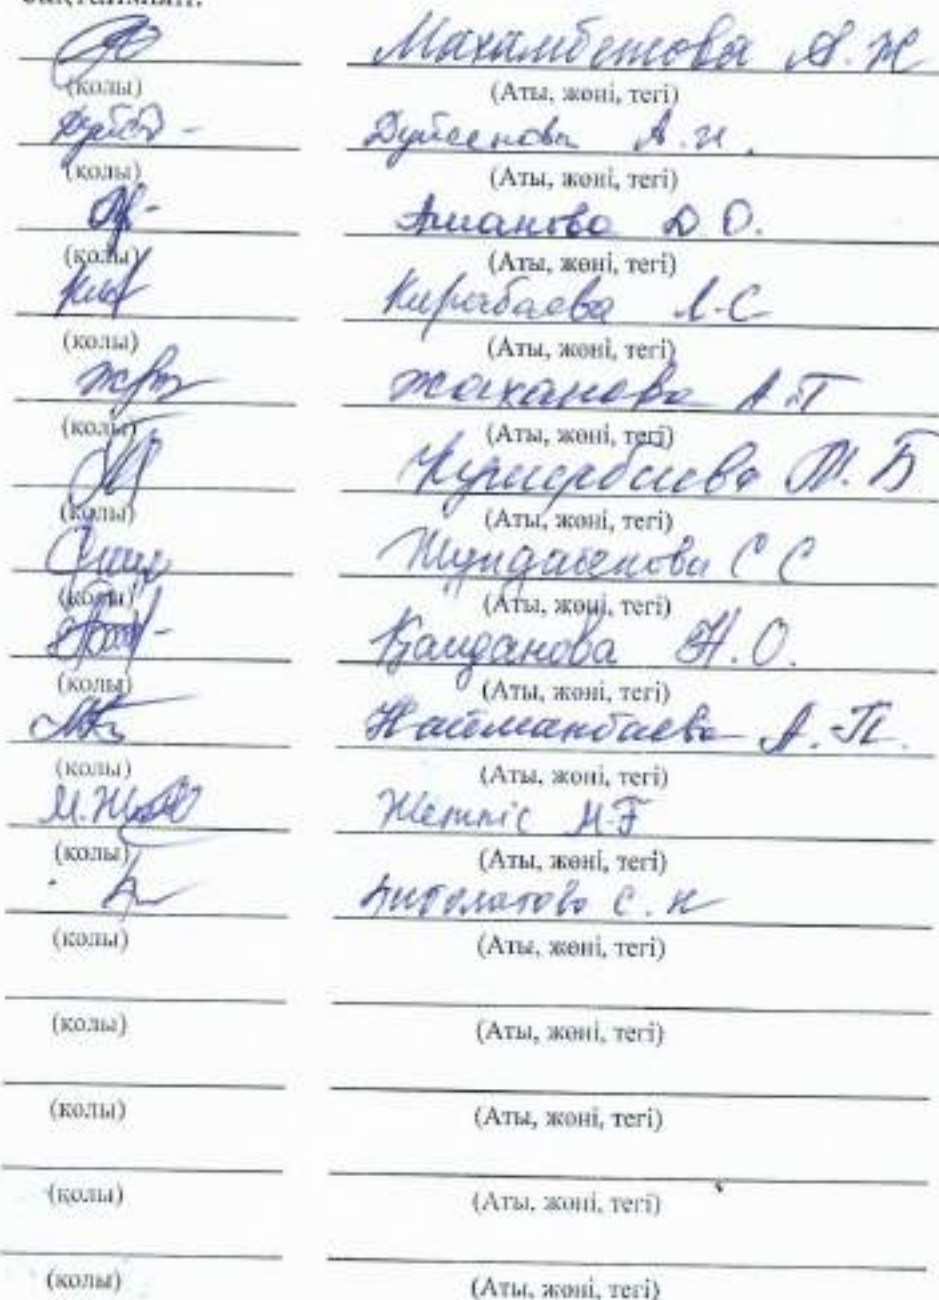 Махамбетова А. Ж
(қолы) (Аты, жөні, тегі)
Дүйсенова А. Н.
(қолы) (Аты, жөні, тегі)
Аманова Д О.
(қолы) (Аты, жөні, тегі)
Кирабаева А-С
(қолы) (Аты, жөні, тегі)
Жаханова А-П
(қолы) (Аты, жөні, тегі)
М. Б
(қолы) (Аты, жөні, тегі)
С С
(қолы) (Аты, жөні, тегі)
Қайданова Н. О.
(қолы) (Аты, жөні, тегі)
Найманбаева А.-П.
(қолы) (Аты, жөні, тегі)
Жетпіс М-Ғ
(қолы) (Аты, жөні, тегі)
С. Н
(қолы) (Аты, жөні, тегі)
(қолы) (Аты, жөні, тегі)
(қолы) (Аты, жөні, тегі)
(қолы) (Аты, жөні, тегі)
(қолы) (Аты, жөні, тегі)